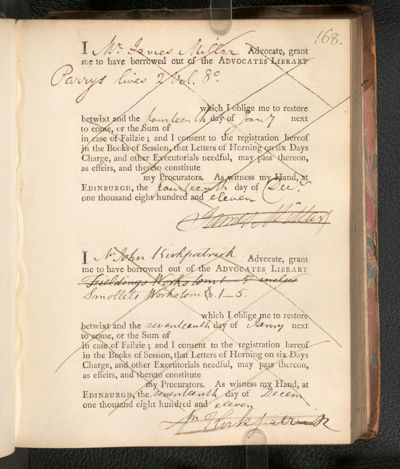 168.
I Mr. James Millar Advocate, grant
me to have borrowed out of the ADVOCATES LIBRARY
Parrys lives 2 Vol. 8o.
which I oblige me to restore
betwixt and the fourteenth day of Jany next
to come, or the Sum of
in case of Failzie; and I consent to the registration hereof
in the Books of Session, that Letters of Horning on six Days
Charge, and other Executorials needful, may pass thereon,
as effeirs, and thereto constitute
my Procurators. As witness my Hand, at
EDINBURGH, the fourteenth day of Decr.
one thousand eight hundred and eleven
James Millar
I Mr John Kirkpatrick Advocate, grant
me to have borrowed out of the ADVOCATES LIBRARY
Fieldings Works tom 1_5 inclus
Smollets Works tom 1_5.
which I oblige me to restore
betwixt and the seventeenth day of Jany next
to come, or the Sum of
in case of Failzie; and I consent to the registration hereof
in the Books of Session, that Letters of Horning on six Days
Charge, and other Executorials needful, may pass thereon,
as effeirs, and thereto constitute
my Procurators. As witness my Hand, at
EDINBURGH, the seventeenth day of Decem
one thousand eight hundred and eleven
Jn Kirkpatrick